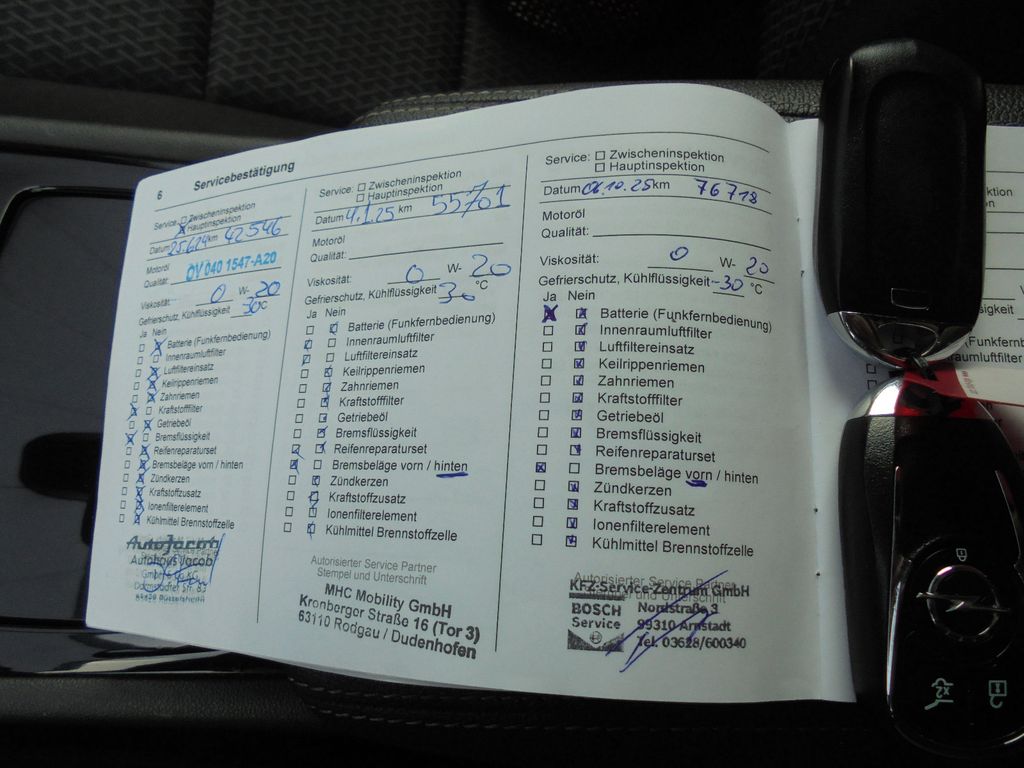 6 Servicebestätigung
Service: Zwischeninspektion
Hauptinspektion
Datum 25.6.24 km 42546
Motoröl
Qualität: OV 040 1547-A20
Viskosität: 0 W- 20
Gefrierschutz, Kühlflüssigkeit 30 °C
Ja Nein
Batterie (Funkfernbedienung)
Innenraumluftfilter
Luftfiltereinsatz
Keilrippenriemen
Zahnriemen
Kraftstofffilter
Getriebeöl
Bremsflüssigkeit
Reifenreparaturset
Bremsbeläge vorn / hinten
Zündkerzen
Kraftstoffzusatz
Ionenfilterelement
Kühlmittel Brennstoffzelle
AutoJacob
Autohaus Jacob
GmbH & Co KG
Darmstädter Str. 83
Service: Zwischeninspektion
Hauptinspektion
Datum 4.1.25 km 55701
Motoröl
Qualität:
Viskosität: 0 W- 20
Gefrierschutz, Kühlflüssigkeit 30 °C
Ja Nein
Batterie (Funkfernbedienung)
Innenraumluftfilter
Luftfiltereinsatz
Keilrippenriemen
Zahnriemen
Kraftstofffilter
Getriebeöl
Bremsflüssigkeit
Reifenreparaturset
Bremsbeläge vorn / hinten
Zündkerzen
Kraftstoffzusatz
Ionenfilterelement
Kühlmittel Brennstoffzelle
Autorisierter Service Partner
Stempel und Unterschrift
MHC Mobility GmbH
Kronberger Straße 16 (Tor 3)
63110 Rodgau / Dudenhofen
Service: Zwischeninspektion
Hauptinspektion
Datum 06.10.25 km 76718
Motoröl
Qualität:
Viskosität: 0 W- 20
Gefrierschutz, Kühlflüssigkeit -30 °C
Ja Nein
Batterie (Funkfernbedienung)
Innenraumluftfilter
Luftfiltereinsatz
Keilrippenriemen
Zahnriemen
Kraftstofffilter
Getriebeöl
Bremsflüssigkeit
Reifenreparaturset
Bremsbeläge vorn / hinten
Zündkerzen
Kraftstoffzusatz
Ionenfilterelement
Kühlmittel Brennstoffzelle
Autorisierter Service Partner
KFZ-Service-Zentrum GmbH
BOSCH
Service
Nordstraße 3
99310 Arnstadt
Tel. 03628/600340
x2